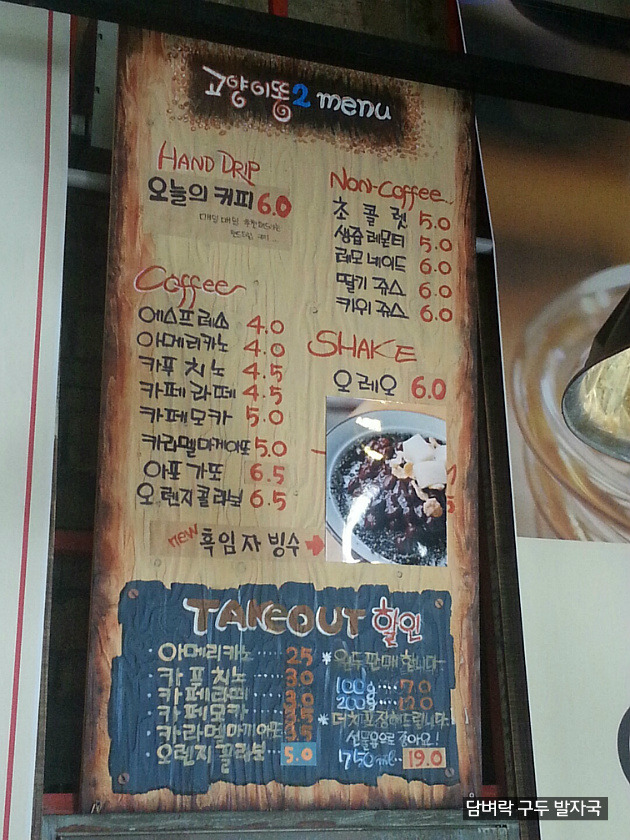 고양이똥2 menu
HAND DRIP
오늘의 커피 6.0
Coffee
에스프레소 4.0
아메리카노 4.0
카푸치노 4.5
카페라떼 4.5
카페모카 5.0
카라멜마끼아또 5.0
아포가또 6.5
오렌지콜라보 6.5
new 흑임자 빙수
Non-Coffee
초콜렛 5.0
생즙레몬티 5.0
레모네이드 6.0
딸기쥬스 6.0
키위쥬스 6.0
SHAKE
오레오 6.0
TAKEOUT 할인
아메리카노 2.5
카푸치노 3.0
카페라떼 3.0
카페모카 3.5
카라멜마끼아또 3.5
오렌지콜라보 5.0
*원두판매합니다
100g 7.0
200g 12.0
*더치포장해드립니다
선물용으로 좋아요!
750ml 19.0
담벼락 구두 발자국